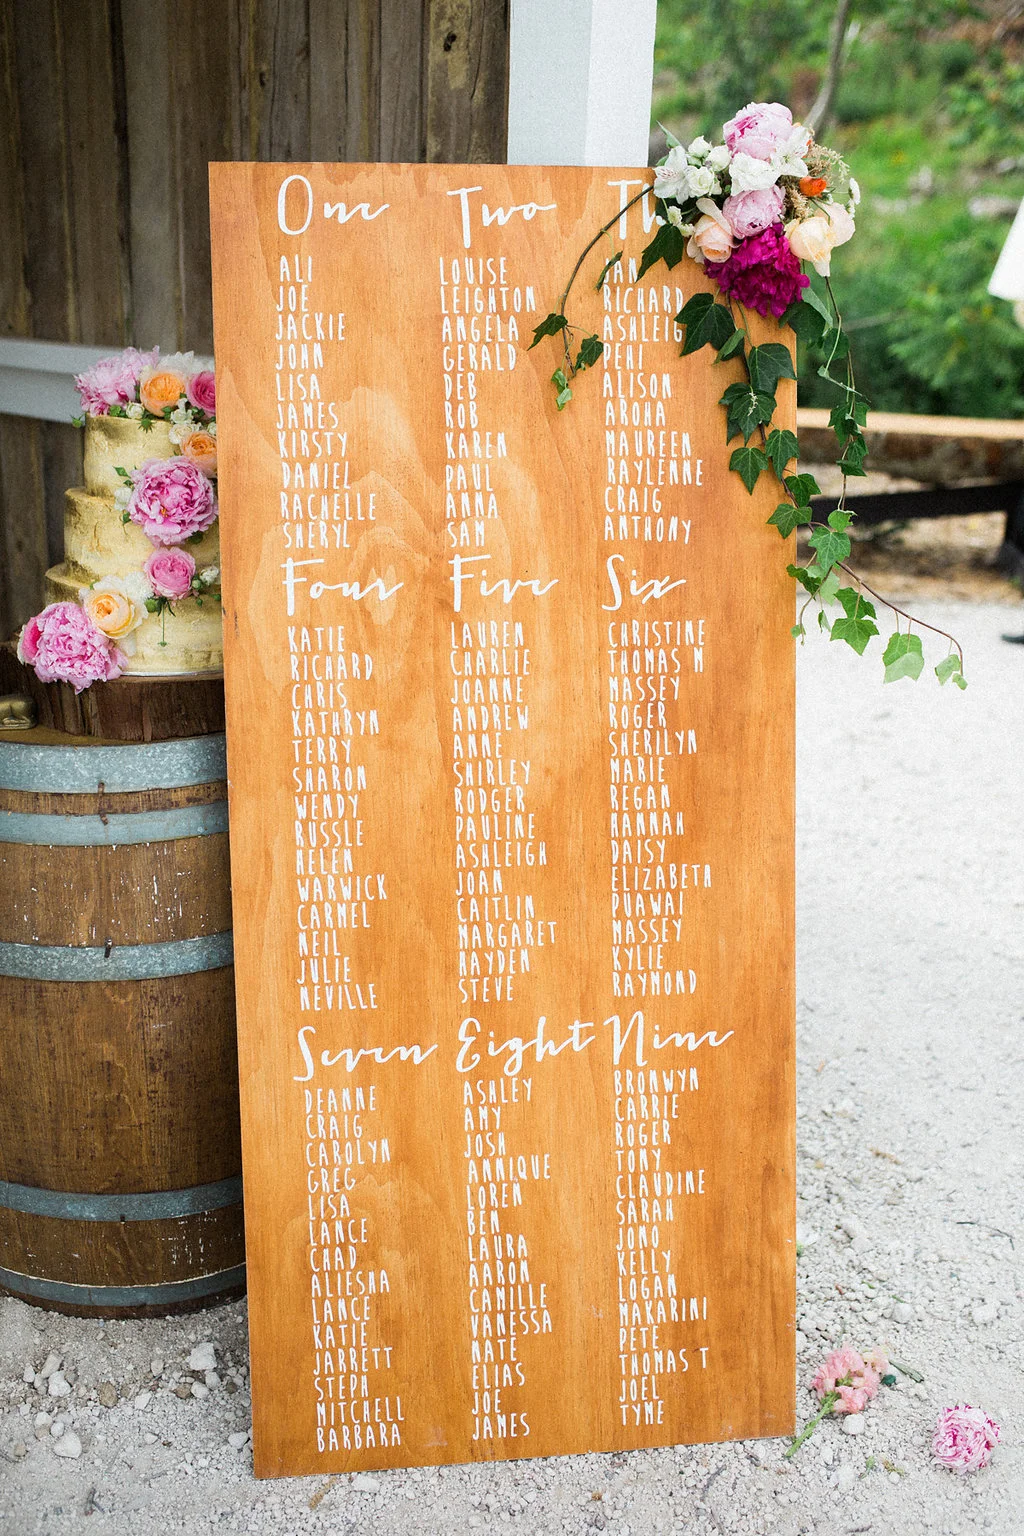 One
ALI
JOE
JACKIE
JOHN
LISA
JAMES
KIRSTY
DANIEL
RACHELLE
SHERYL
Two
LOUISE
LEIGHTON
ANGELA
GERALD
DEB
ROB
KAREN
PAUL
ANNA
SAM
Th
IAN
RICHARD
ASHLEIG
PEHI
ALISON
AROHA
MAUREEN
RAYLENNE
CRAIG
ANTHONY
Four
KATIE
RICHARD
CHRIS
KATHRYN
TERRY
SHARON
WENDY
RUSSLE
HELEN
WARWICK
CARMEL
NEIL
JULIE
NEVILLE
Five
LAUREN
CHARLIE
JOANNE
ANDREW
ANNE
SHIRLEY
RODGER
PAULINE
ASHLEIGH
JOAN
CAITLIN
MARGARET
HAYDEN
STEVE
Six
CHRISTINE
THOMAS M
MASSEY
ROGER
SHERILYN
MARIE
REGAN
HANNAH
DAISY
ELIZABETH
PUAWAI
MASSEY
KYLIE
RAYMOND
Seven
DEANNE
CRAIG
CAROLYN
GREG
LISA
LANCE
CHAD
ALIESHA
LANCE
KATIE
JARRETT
STEPH
MITCHELL
BARBARA
Eight
ASHLEY
AMY
JOSH
ANNIQUE
LOREN
BEN
LAURA
AARON
CAMILLE
VANESSA
NATE
ELIAS
JOE
JAMES
Nine
BRONWYN
CARRIE
ROGER
TONY
CLAUDINE
SARAH
JONO
KELLY
LOGAN
MAKARINI
PETE
THOMAS T
JOEL
TYME